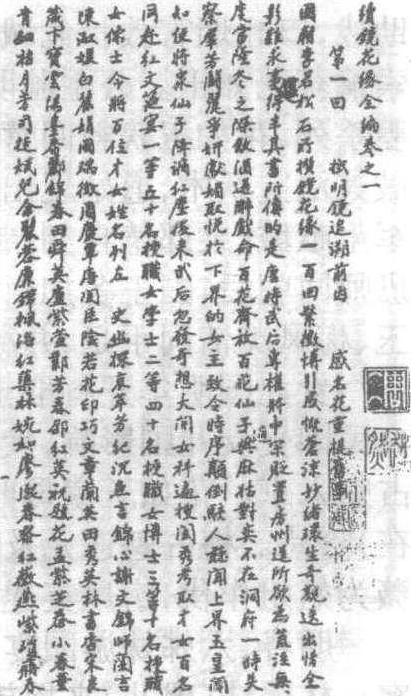 續鏡花緣全編卷之一
第一回 攬明鏡追溯前因 感名花重提舊事
國朝李君松石所撰鏡花緣一百回繁徵博引感慨蒼涼妙緒環生奇觀迭出惜全
影難求事得半具書所傳的是唐時武后專權將中宗貶置房州遂所欲為荒淫無
度當隆冬之際飲酒遊聯戲命百花齊放百花仙子與麻姑對奕不在洞府一時失
察羣芳開麗爭妍獻媚取悅於下界的女主致令時序顛倒駭人聽聞上界玉皇聞
知便將眾仙子降謫紅塵後來武后忽發奇想大開女科遍搜閨秀考取才女百名
同赴紅文筵宴一等五十名授職女學士二等四十名授職女博士三等十名授職
女儒士今將百位才女姓名列左 史幽探哀萃芳紀沉魚言錦心謝文錦師蘭言
陳淑媛白麗娟國瑞徵周慶覃唐閨臣陰若花印巧文章蘭英田秀英林書香宋良
箴卞寶雲潘麗春酆錦春田舜英盧紫萱鄴芳春邵紅英祝題花孟紫芝秦小春董
青鈿褚月芳司徒斌兒余麗蓉廉錦楓洛紅蕖林婉如廖熙春黎紅薇燕紫瓊蔣春